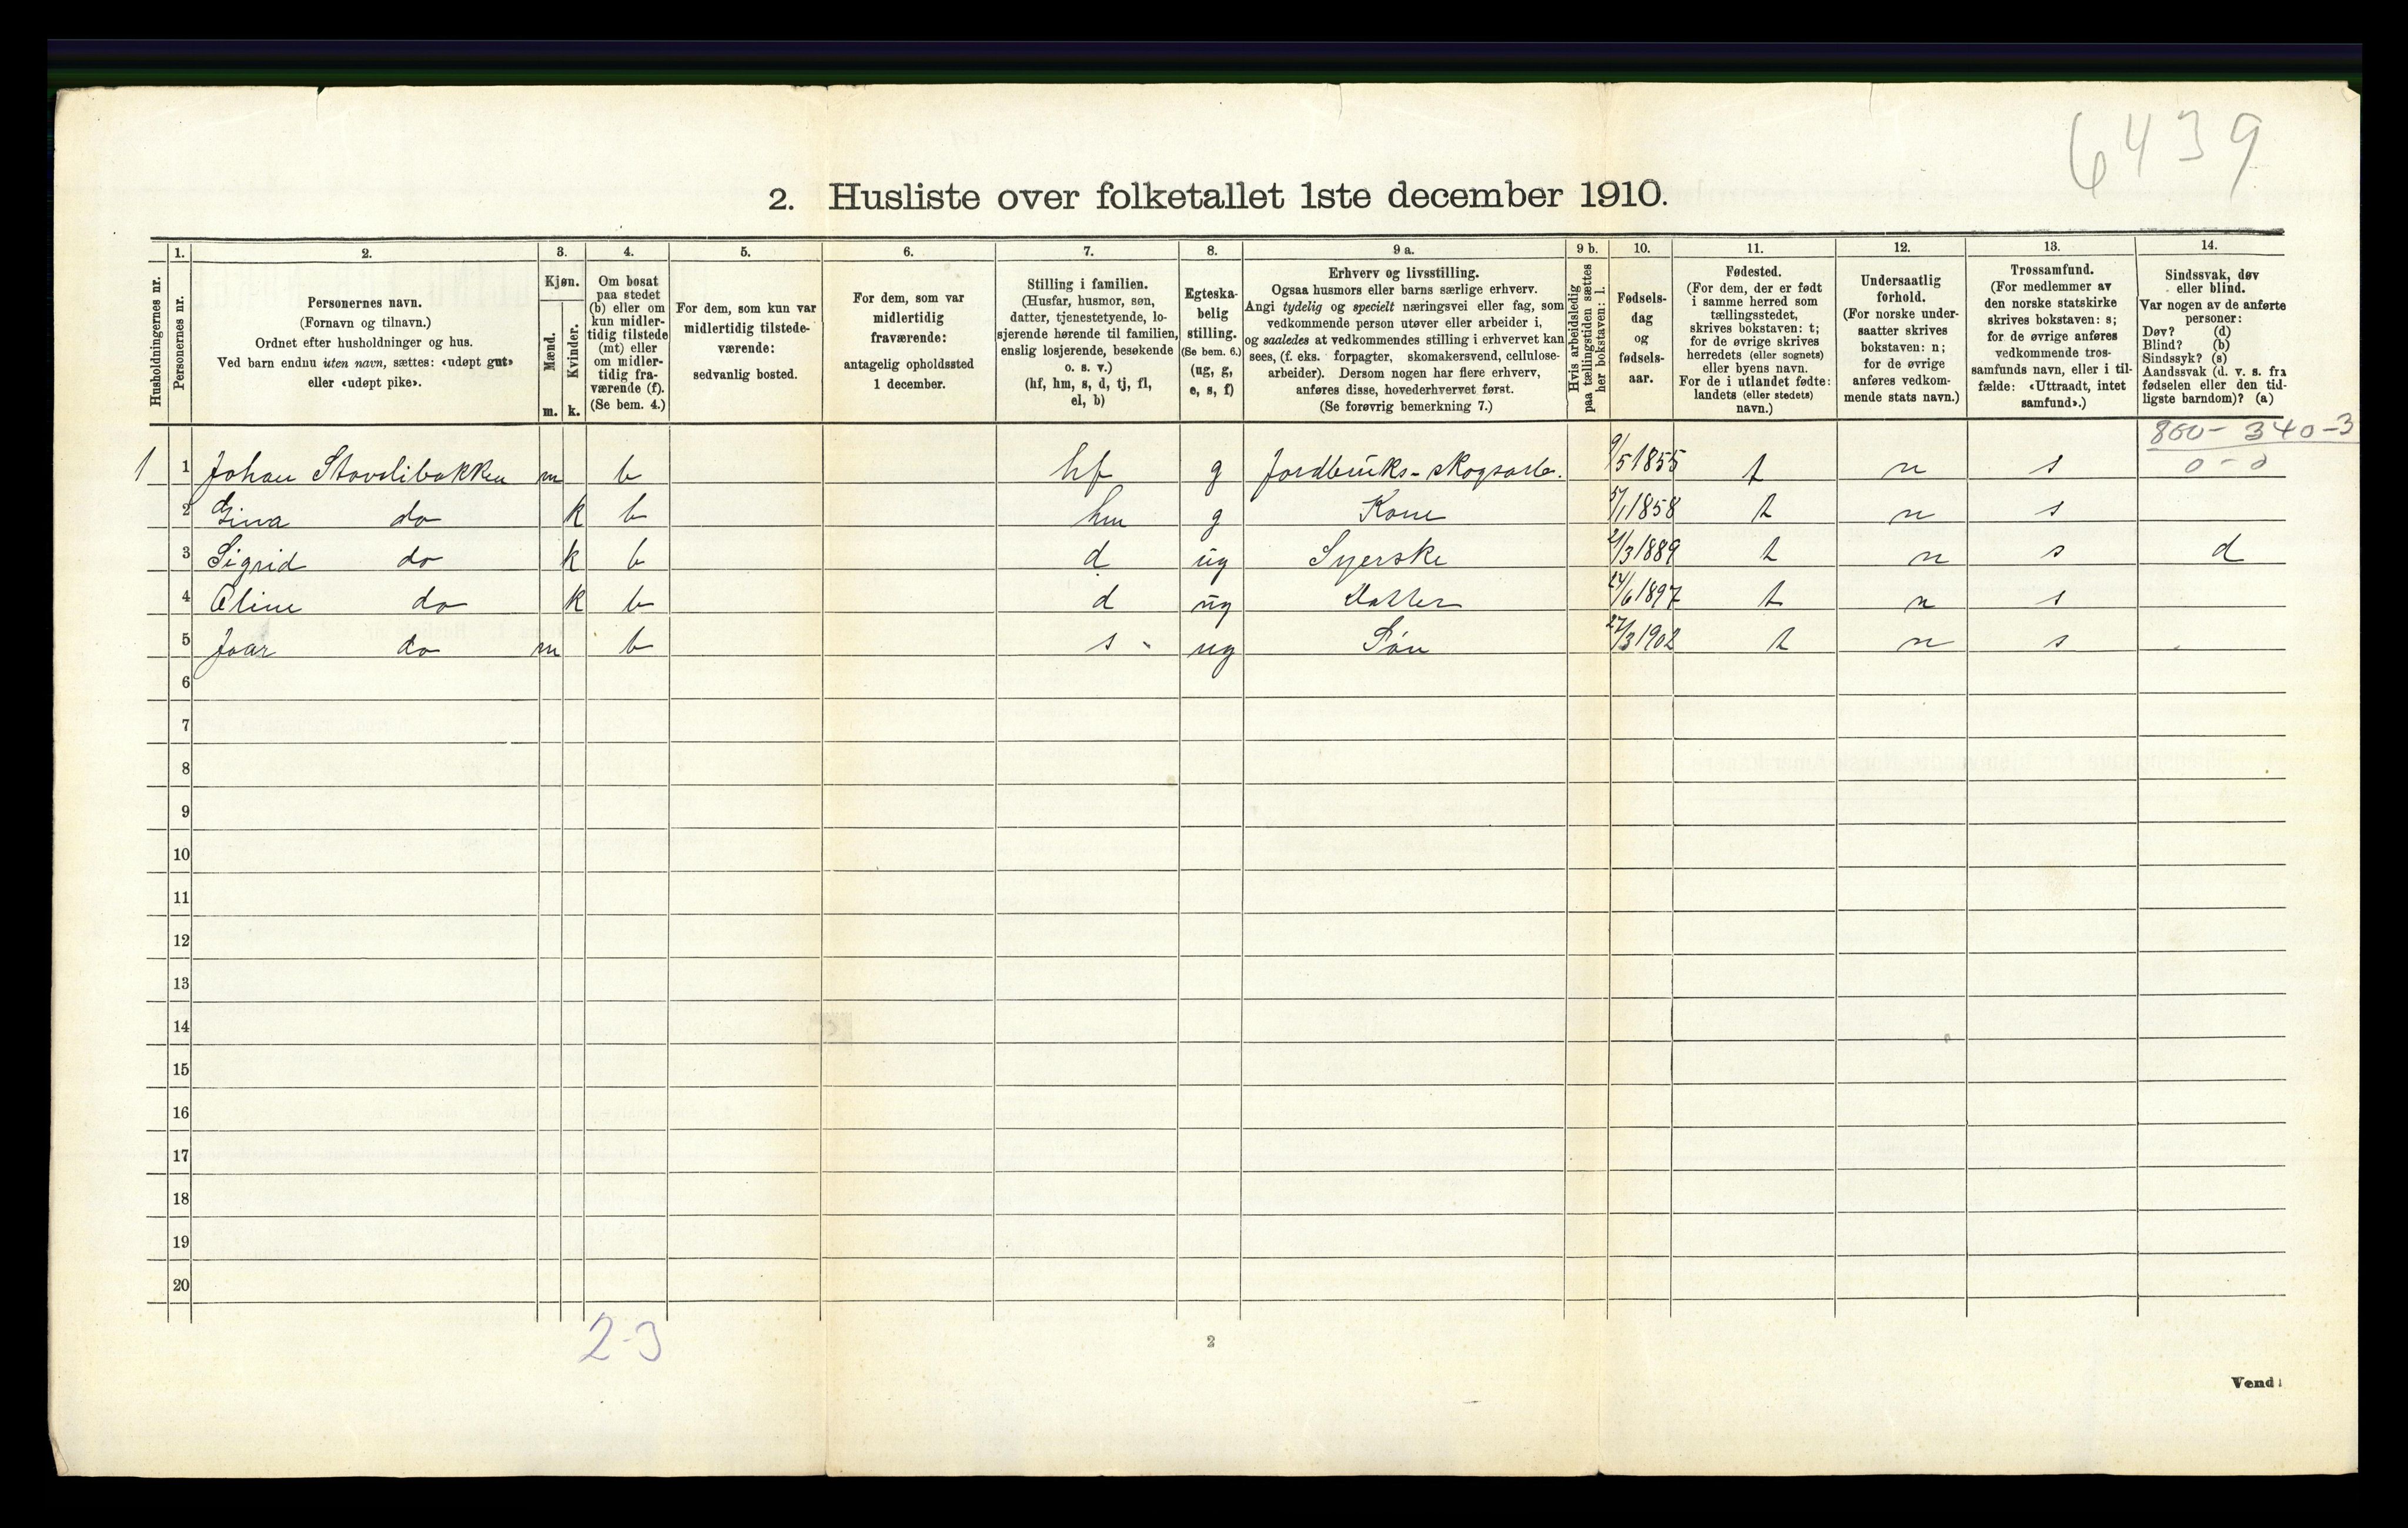 6439
2. Husliste over folketallet 1ste december 1910.
Husholdningernes nr.
1.
Personernes nr.
2.
Personernes navn.
(Fornavn og tilnavn.)
Ordnet efter husholdninger og hus.
Ved barn endnu uten navn, sættes: «udøpt gut»
eller «udøpt pike».
3.
Kjøn.
Mænd.
Kvinder.
m. k.
4.
Om bosat
paa stedet
(b) eller om
kun midler-
tidig tilstede
(mt) eller
om midler-
tidig fra-
værende (f).
(Se bem. 4.)
5.
For dem, som kun var
midlertidig tilstede-
værende:
sedvanlig bosted.
6.
For dem, som var
midlertidig
fraværende:
antagelig opholdssted
1 december.
7.
Stilling i familien.
(Husfar, husmor, søn,
datter, tjenestetyende, lo-
sjerende hørende til familien,
enslig losjerende, besøkende
o. s. v.)
(hf, hm, s, d, tj, fl,
el, b)
8.
Egteska-
belig
stilling.
(Se bem. 6.)
(ug, g,
e, s, f)
9 a.
Erhverv og livsstilling.
Ogsaa husmors eller barns særlige erhverv.
Angi tydelig og specielt næringsvei eller fag, som
vedkommende person utøver eller arbeider i,
og saaledes at vedkommendes stilling i erhvervet kan
sees, (f. eks. forpagter, skomakersvend, cellulose-
arbeider). Dersom nogen har flere erhverv,
anføres disse, hovederhvervet først.
(Se forøvrig bemerkning 7.)
9 b.
Hvis arbeidsledig
paa tællingstiden sættes
her bokstaven: l.
10.
Fødsels-
dag
og
fødsels-
aar.
11.
Fødested.
(For dem, der er født
i samme herred som
tællingsstedet,
skrives bokstaven: t;
for de øvrige skrives
herredets (eller sognets)
eller byens navn.
For de i utlandet fødte:
landets (eller stedets)
navn.)
12.
Undersaatlig
forhold.
(For norske under-
saatter skrives
bokstaven: n;
for de øvrige
anføres vedkom-
mende stats navn.)
13.
Trossamfund.
(For medlemmer av
den norske statskirke
skrives bokstaven: s;
for de øvrige anføres
vedkommende tros-
samfunds navn, eller i til-
fælde: «Uttraadt, intet
samfund».)
14.
Sindssvak, døv
eller blind.
Var nogen av de anførte
personer:
Døv? (d)
Blind? (b)
Sindssyk? (s)
Aandssvak (d. v. s. fra
fødselen eller den tid-
ligste barndom)? (a)
800- 340-3
0-0
1 1 Johan Stavslibakken m b hf g Jordbruks- skogsarb. 9/5 1855 t n s
2 Gina do k b hm g Kone 1858 t n s
3 Sigrid do k b d ug Syerske 21/3 1889 t n s d
4 Oline do k b d ug Datter 24/6 1897 t n s
5 Joar do m b s ug Søn 27/3 1902 t n s
6
7
8
9
10
11
12
13
14
15
16
17
18
19
20
2-3
2
Vend!